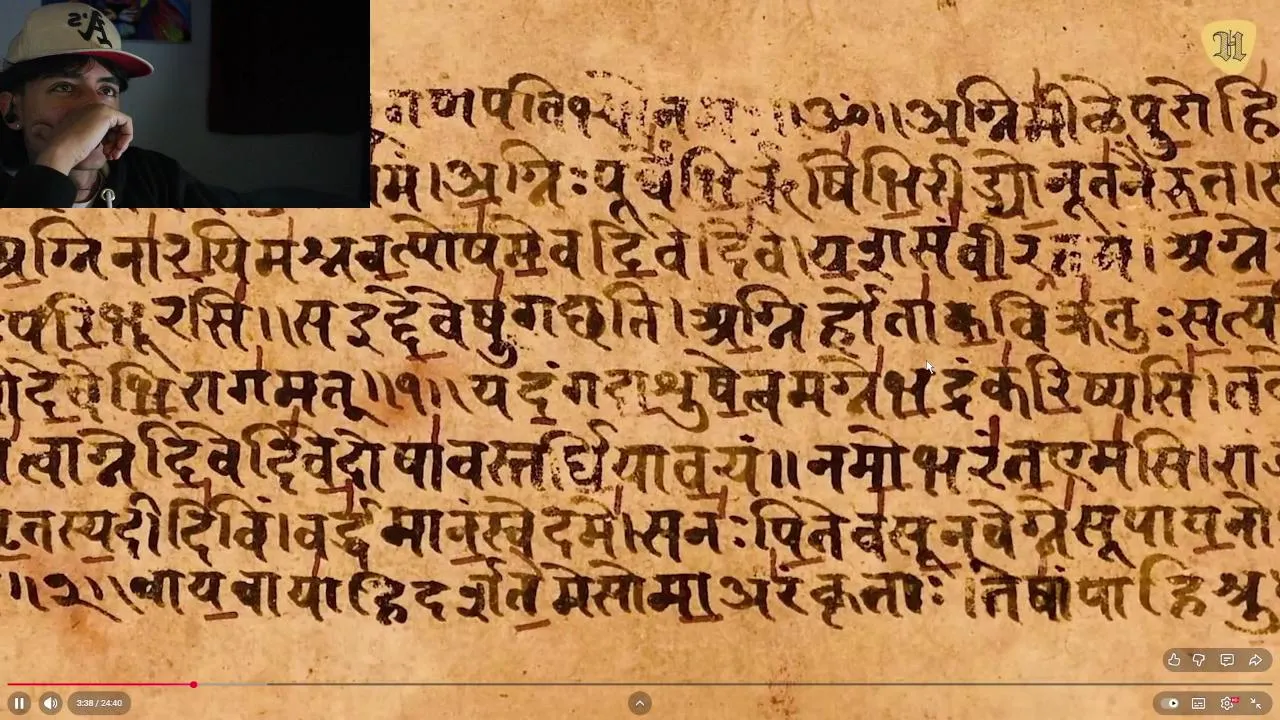 गणपतिभ्यो न ॥ॐ॥अग्निमीळेपुरोहि
मं।अग्निःपूर्वेभिर्ऋषिभिरीड्योनूतनैरुत।
अग्निनारयिमश्नवत्पोषमेवदिवेदिवे।यशसंवीर तमं।अग्ने
परिभूरसि॥सइद्देवेषुगछति।अग्निर्होताकविक्रतुःसत्य
देवेभिरागमत्॥१॥यदंगदाशुषेत्वमग्नेभद्रंकरिष्यसि।तवे
त्वाग्नेदिवेदिवेदोषावस्तर्धियावयं॥नमोभरंतएमसि।रा
तस्यदीदिविं।वर्द्धमानंस्वेदमे।सनःपितेवसूनवेग्नेसूपायनो
॥२॥वायवायाहिदर्शतमेसोमाअरंकृताः।तेषांपाहिश्रु
3:38 / 24:40